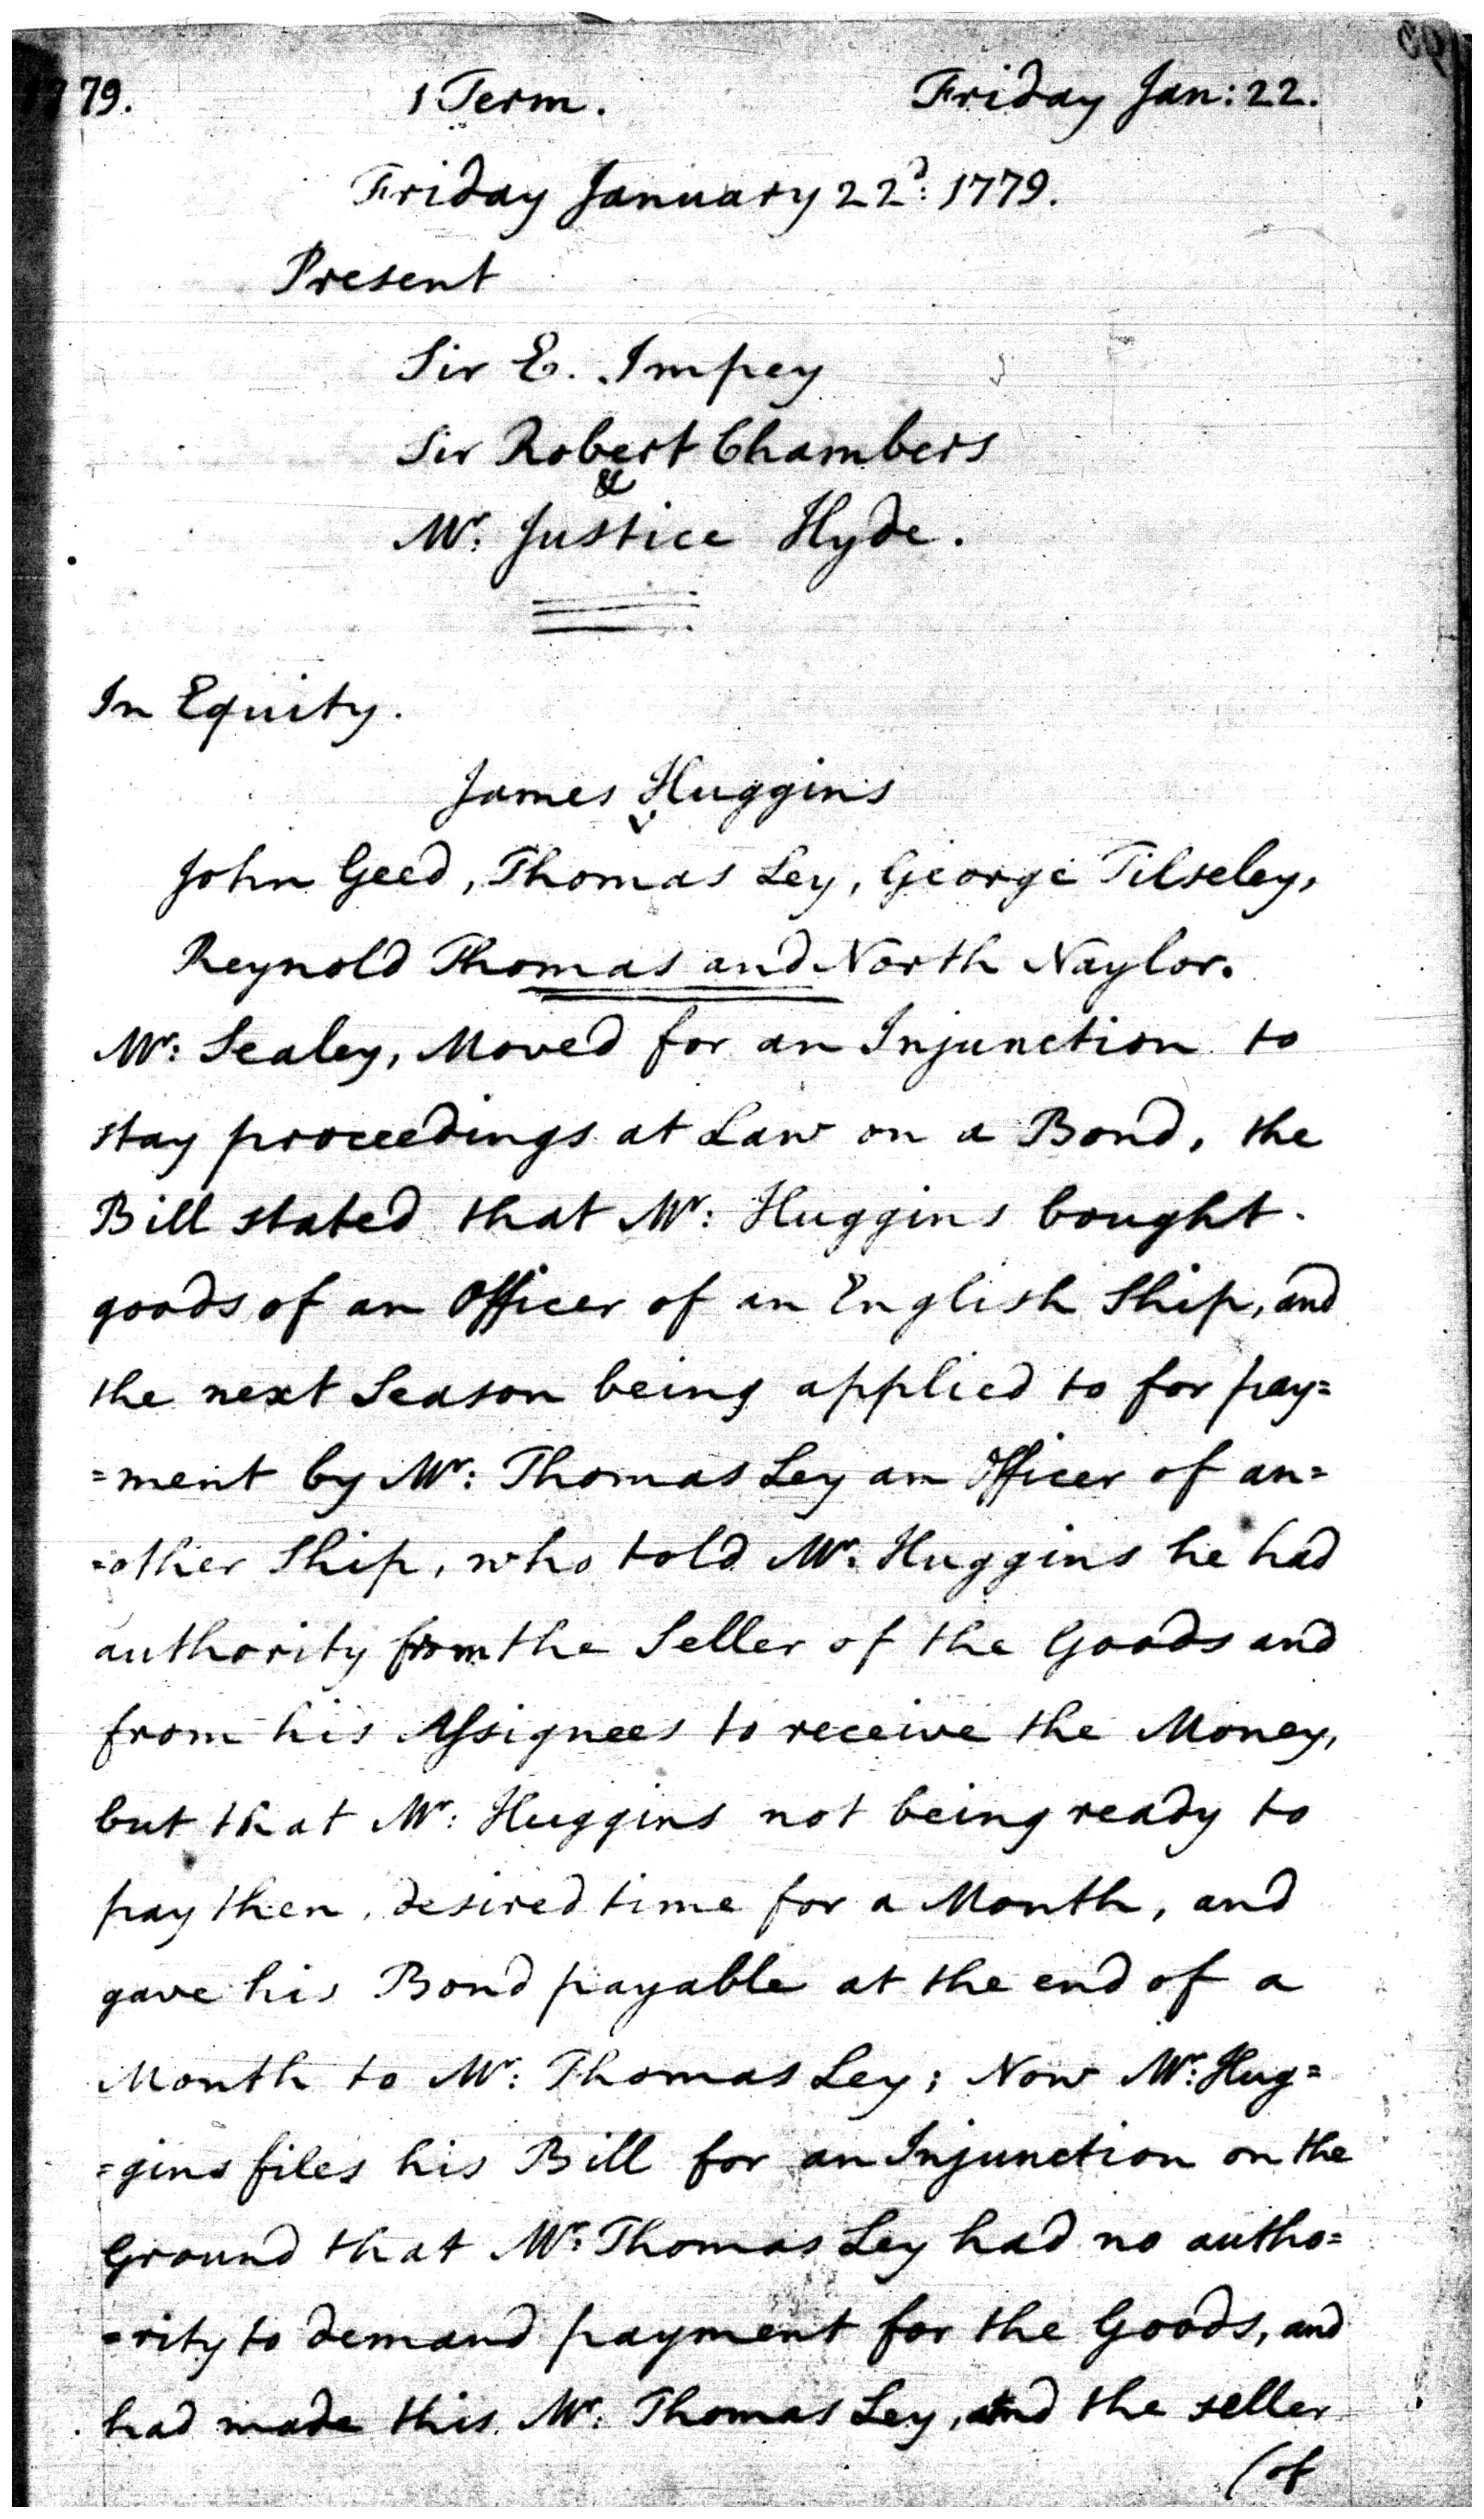 1779. 1 Term. Friday Jan: 22.
Friday January 22d: 1779.
Present
Sir E. Impey
Sir Robert Chambers
&
Mr: Justice Hyde.
In Equity.
James Huggins
v
John Geed, Thomas Ley, George Tilseley,
Reynold Thomas and North Naylor.
Mr: Sealey, Moved for an Injunction to
stay proceedings at Law on a Bond, the
Bill stated that Mr: Huggins bought
goods of an Officer of an English Ship, and
the next Season being applied to for pay=
=ment by Mr: Thomas Ley an Officer of an=
=other Ship, who told Mr: Huggins he had
authority from the Seller of the Goods and
from his Assignees to receive the Money,
but that Mr: Huggins not being ready to
pay then, desired time for a Month, and
gave his Bond payable at the end of a
Month to Mr: Thomas Ley; Now Mr: Hug=
=gins files his Bill for an Injunction on the
Ground that Mr: Thomas Ley had no autho=
=rity to demand payment for the Goods, and
had made this Mr: Thomas Ley, and the seller
(of